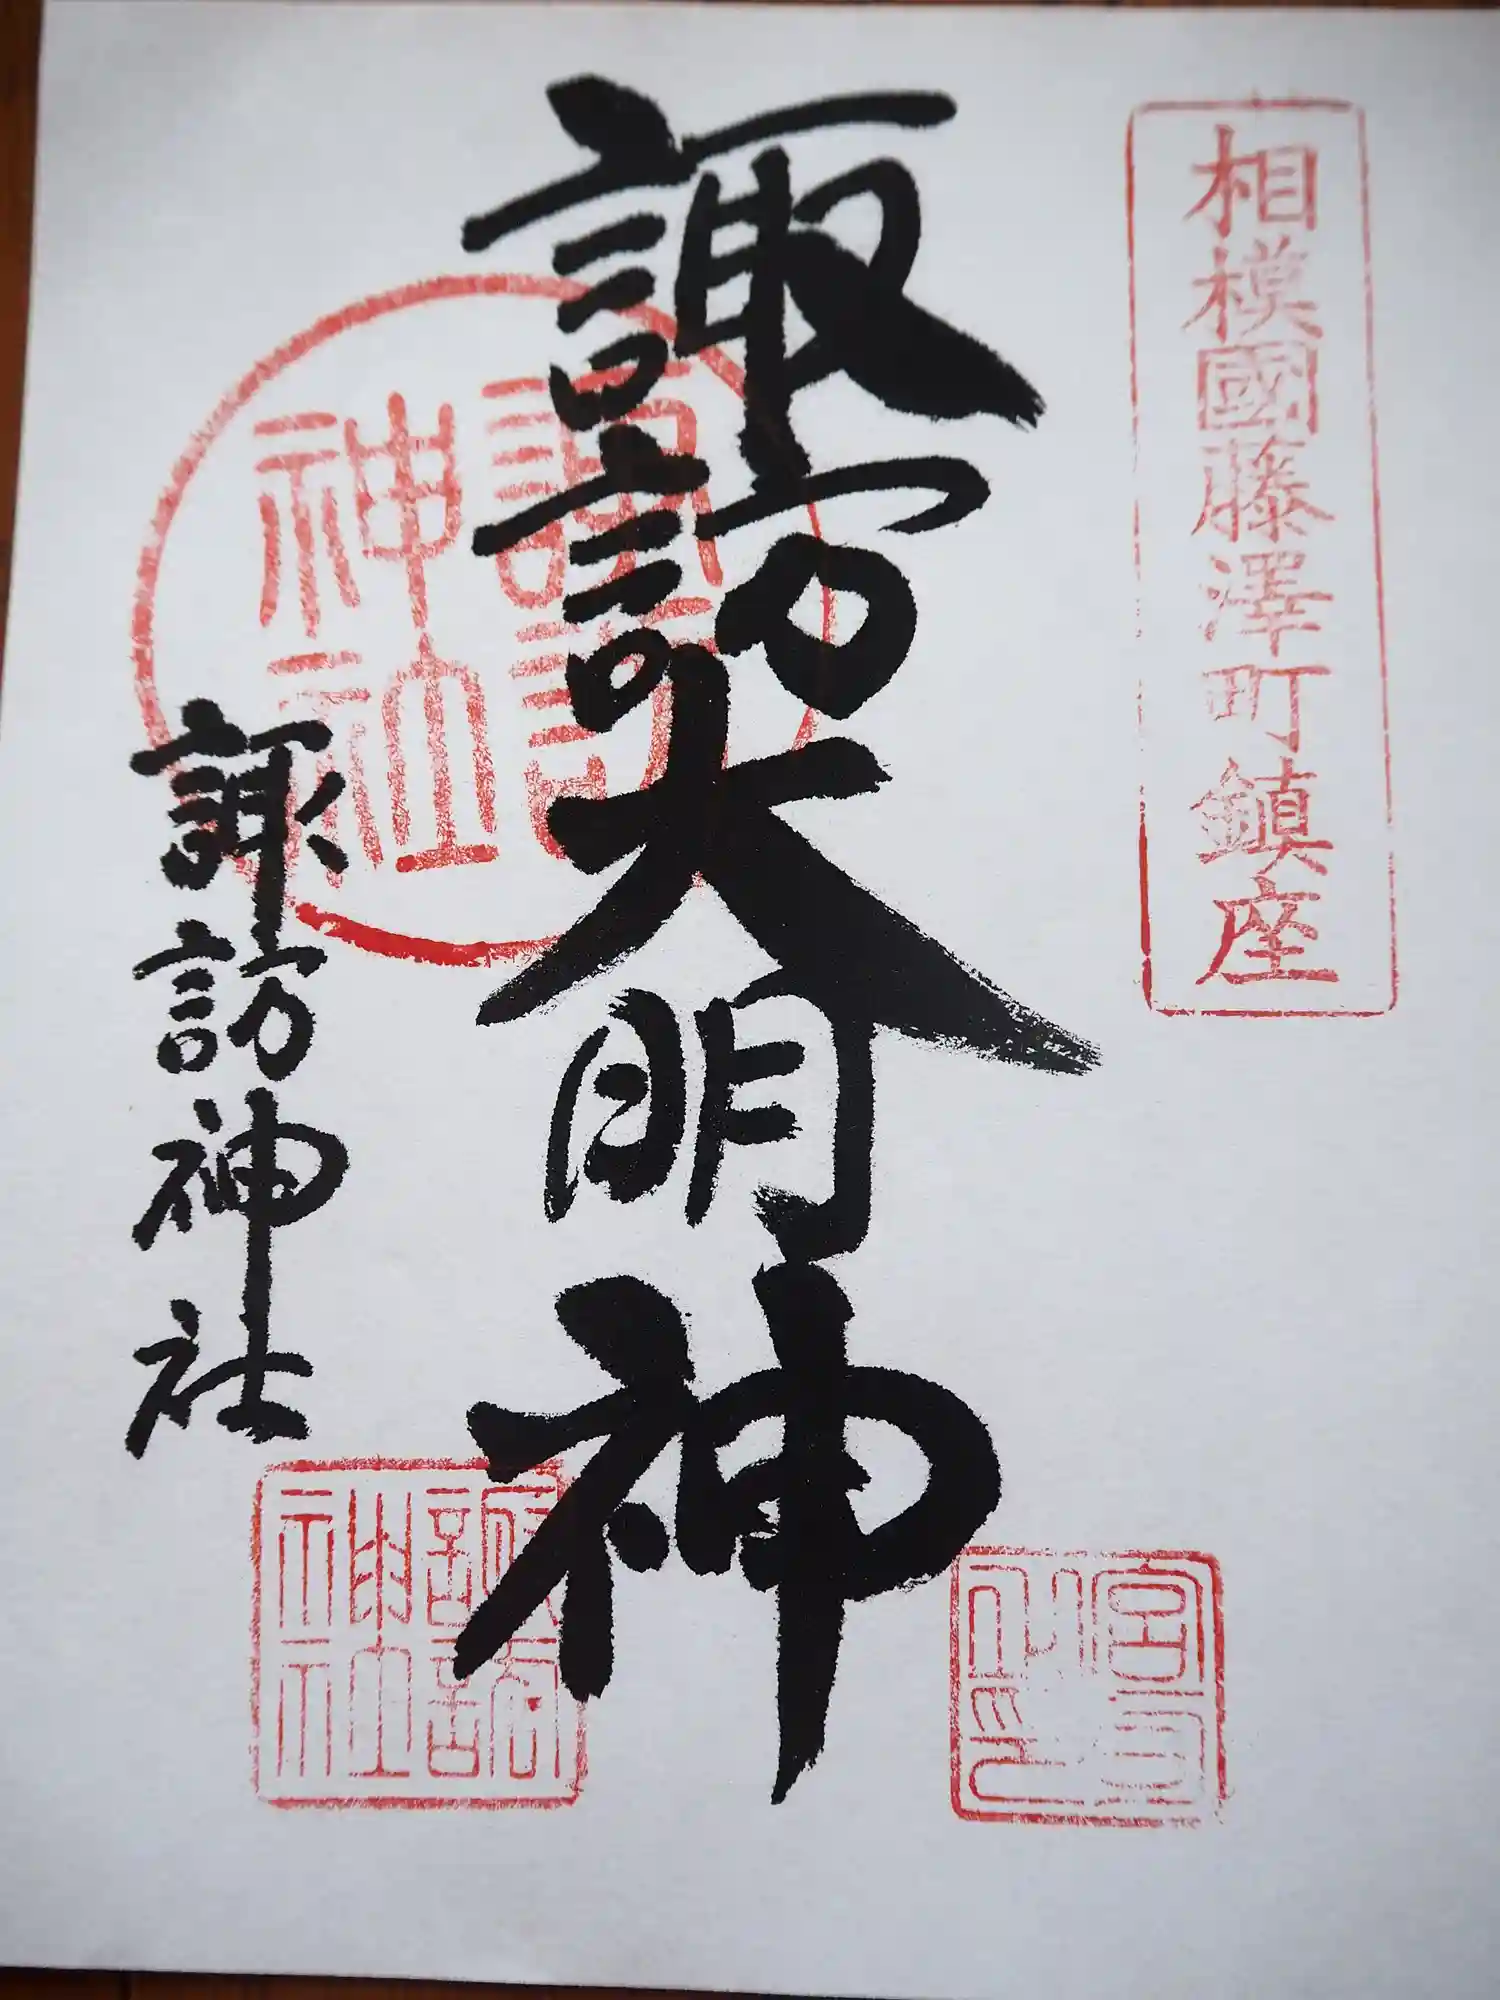 相模國藤澤町鎮座
諏訪大明神
諏訪神社
諏訪
神社
諏訪
神社
宮司
之印